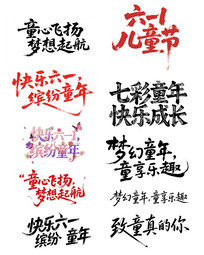 童心飞扬
梦想起航
六一
儿童节
快乐六一,
缤纷童年
七彩童年
快乐成长
快乐六一,
缤纷童年
梦幻童年,
童享乐趣
"童心飞扬,
梦想起航
梦幻童年,童享乐趣
快乐六一
缤纷·童年
致童真的你